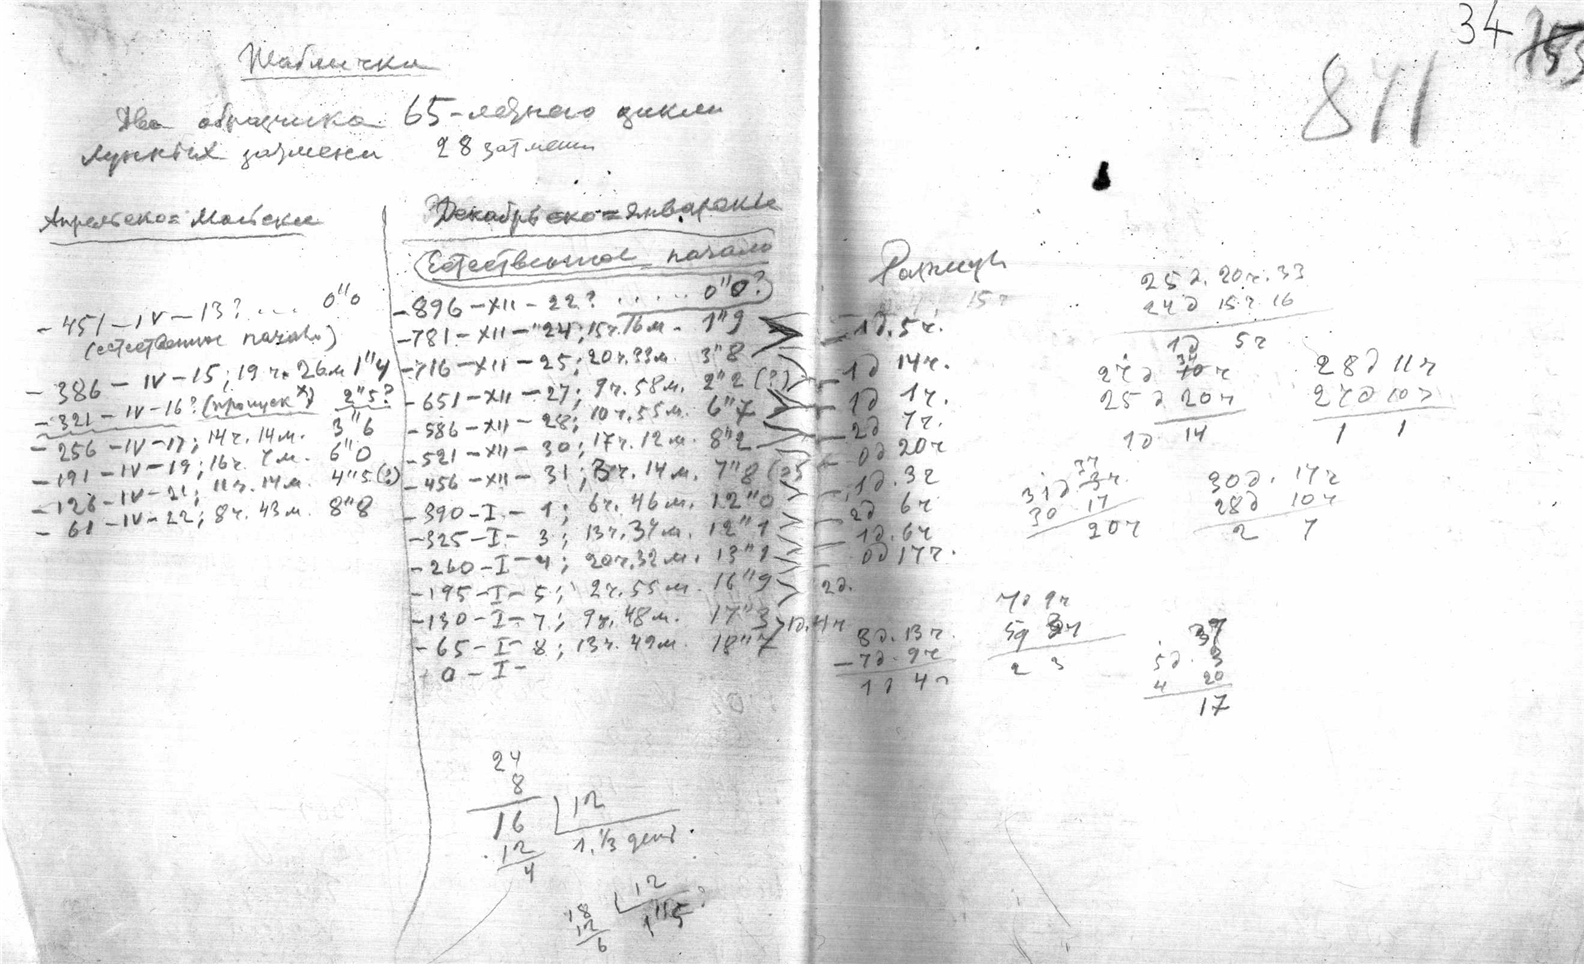 34 155
841
Табличка
Два образчика 65-летнего цикла
лунных затмений 28 затмений
Апрельско=Майские
-451-IV-13? ... 0"0
(естественное начало)
-386-IV-15; 19ч. 26м 1"4
-321-IV-16? (пропуск x) 2"5?
-256-IV-17; 14ч. 14м. 3"6
-191-IV-19; 16ч. 7м. 6"0
-126-IV-21; 11ч. 14м. 4"5(?)
-61-IV-22; 8ч. 43м. 8"8
Декабрьско=январские
Естественное начало
-896-XII-22? ...... 0"0?
-781-XII-24; 15ч. 16м. 1"9
-716-XII-25; 20ч. 33м. 3"8
-651-XII-27; 9ч. 58м. 2"2 (?)
-586-XII-28; 10ч. 55м. 6"7
-521-XII-30; 17ч. 12м. 8"2
-456-XII-31; 3ч. 14м. 7"8
-390-I-1; 6ч. 46м. 12"0
-325-I-3; 13ч. 34м. 12"1
-260-I-4; 20ч. 32м. 13"1
-195-I-5; 2ч. 55м. 16"9
-130-I-7; 9ч. 48м. 17"3
-65-I-8; 13ч. 49м. 18"7
0-I-
15ч
1д. 5ч.
1д 14ч.
1д 1ч.
2д 7ч.
0д 20ч
1д. 3ч
2д 6ч
1д. 6ч
0д 17ч.
2д.
1д. 4ч
8д. 13ч.
-7д. 9ч
1д 4ч
25д. 20ч. 33
24д 15ч. 16
1д 5ч
27д 10ч
34
25д 20ч
1д. 14
28д 11ч
27д 10ч
1 1
31д. 3ч.
27
30 17
20ч
30д. 17ч
28д 10ч
2 7
7д 9ч
5д
2 3
5д. 3
4 20
17
24
8
16 12
12 1. 1/3 дня.
4
18 12
12 1"5?
6